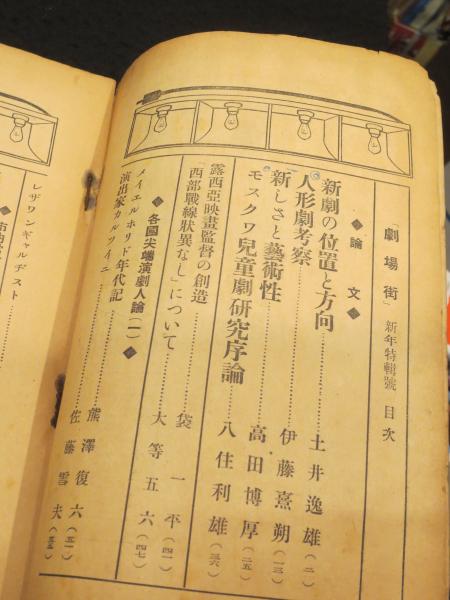 「劇場街」新年特輯號 目次
◆論文◆
新劇の位置と方向……土井逸雄(二)
人形劇考察……伊藤熹朔(一三)
新しさと藝術性……高田博厚(二五)
モスクワ兒童劇硏究序論……八住利雄(三六)
露西亞映畫監督の創造……袋一平(四一)
「西部戰線異狀なし」について……大等五六(四七)
◆各國尖端演劇人論(一)◆
メイエルホリド年代記……熊澤復六(五一)
演出家カルツイエ……佐藤雪夫(五五)
レザワンギャルヂスト……